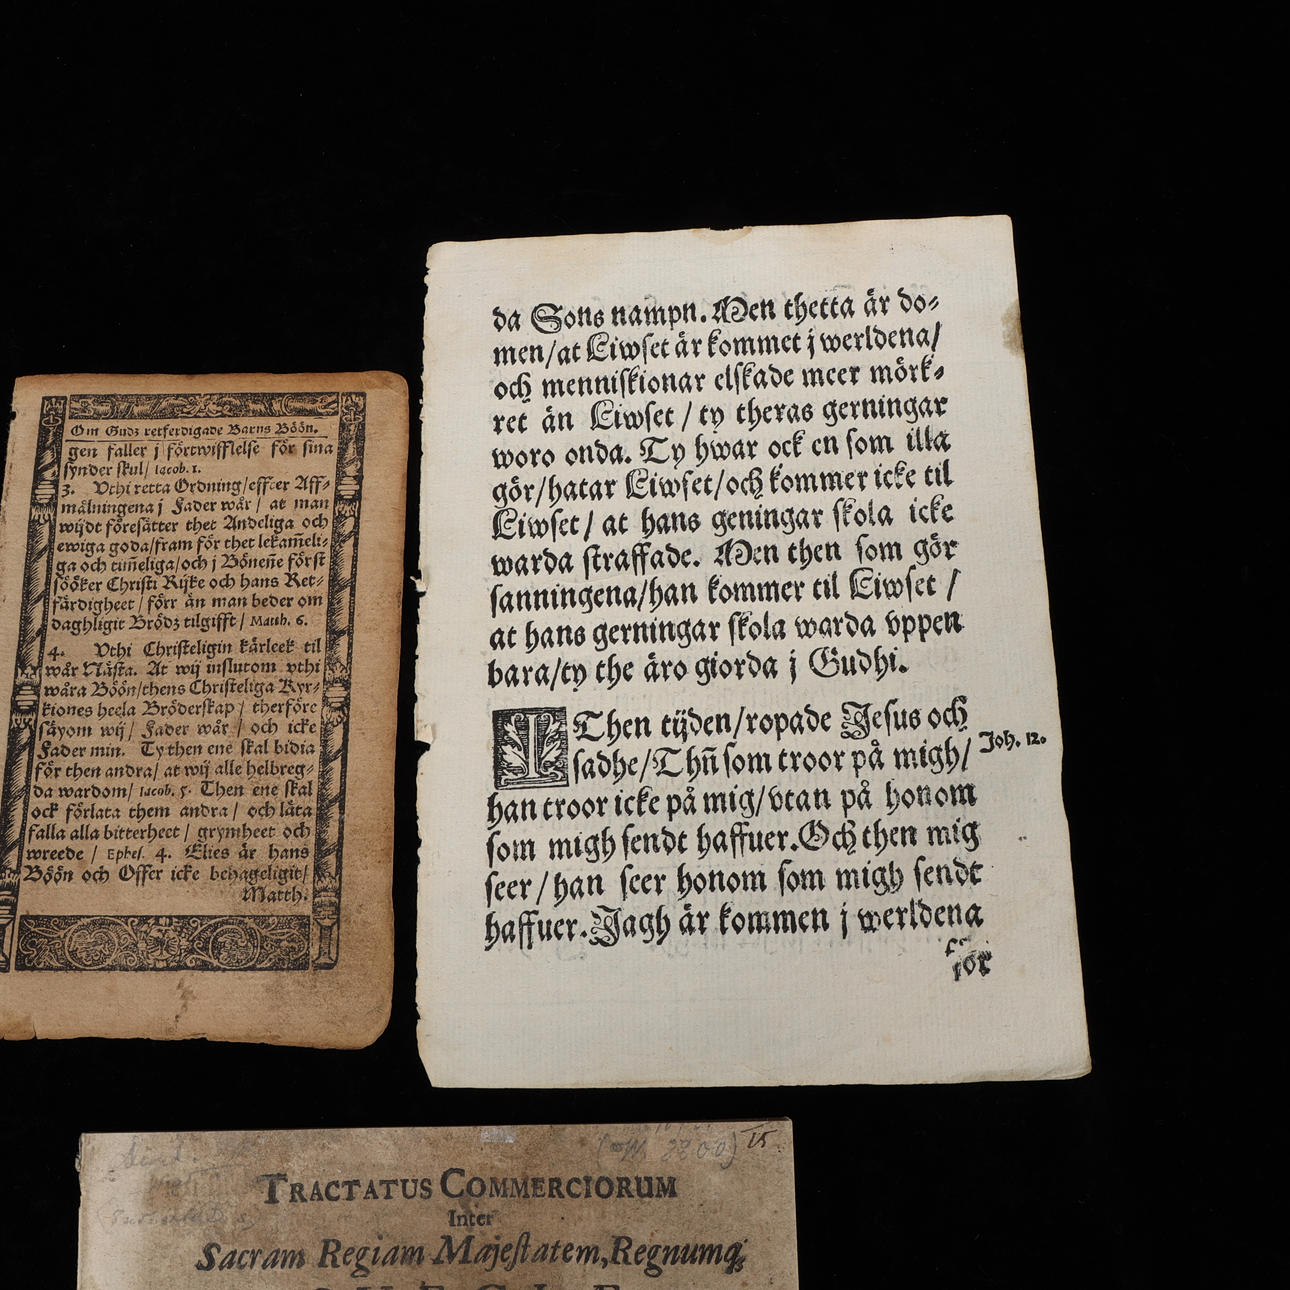 Om Gudz retferdigade Barns Böön.
gen faller j förtwifflelse för sina
synder skul/ Iacob. 1.
3. Vthi retta Ordning/effter Aff-
målningena j Fader wår/ at man
wijdt föresätter thet Andeliga och
ewiga goda/fram för thet lekam̃eli-
ga och tim̃eliga/och j Bönen̄e först
söӧker Christi Rijke och hans Ret-
färdigheet/ förr än man beder om
daghligit Brödz tilgifft/ Matth. 6.
4. Vthi Christeligin kärleek til
wår Nästa. At wij inslutom vthi
wåra Böön/thens Christeliga Kyr-
kiones heela Bröderskap/ therföre
säyom wij/ Fader wår/ och icke
Fader min. Ty then ene skal bidia
för then andra/ at wij alle helbreg-
da wardom/ Iacob. 5. Then ene skal
ock förlata them andra/ och låta
falla alla bitterheet/ grymheet och
wreede/ Ephes. 4. Elies är hans
Böön och Offer icke behageligit/
Matth.
da Sons nampn. Men thetta är do-
men/at Liwset är kommet j werldena/
och menniskionar elskade meer mörk-
ret än Liwset/ ty theras gerningar
woro onda. Ty hwar ock en som illa
gör/hatar Liwset/och kommer icke til
Liwset/ at hans geningar skola icke
warda straffade. Men then som gör
sanningena/han kommer til Liwset/
at hans gerningar skola warda vppen
bara/ty the äro giorda j Gudhi.
I Then tijden/ropade Jesus och
sadhe/Thn̄ som troor på migh/
Joh. 12.
han troor icke på mig/vtan på honom
som migh sendt haffuer. Och then mig
seer/han seer honom som migh sendt
haffuer. Jagh är kommen j werldena
för
15.
TRACTATUS COMMERCIORUM
Inter
Sacram Regiam Majestatem, Regnumq;
SUECIÆ